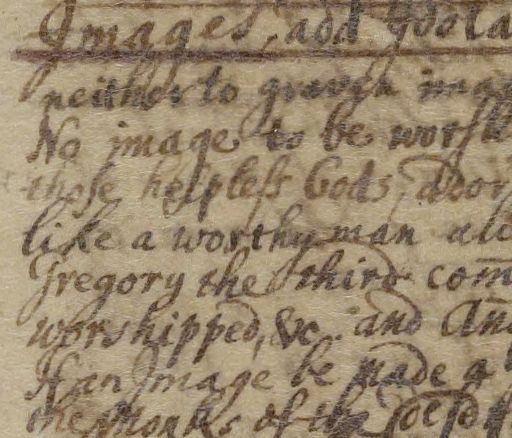 Images, and Idola
neither to graven imag
No image to be worsh
those helpless Gods, Ador
like a worthy man
Gregory the third com̄
worshipped, &c. and An̄
If an Image be made a
the monks of the